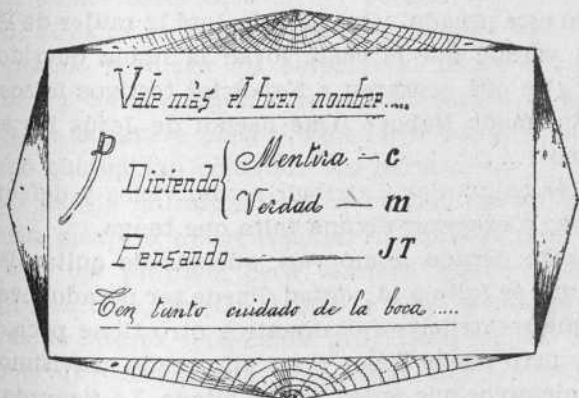 Vale más el buen nombre....
Diciendo { Mentira — c
Verdad — m
Pensando ——— JT
Ten tanto cuidado de la boca .....